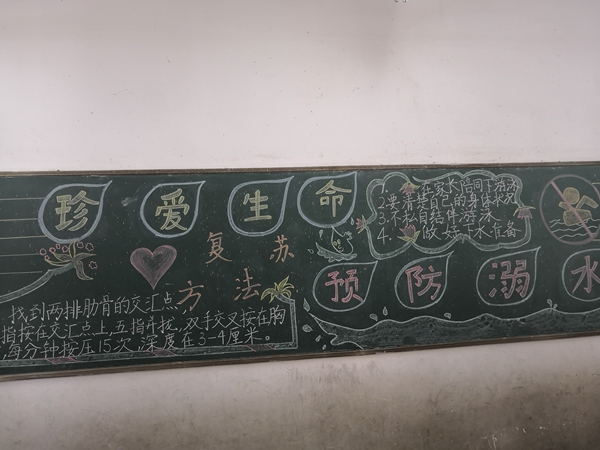 珍爱生命
复苏
方法
找到两排肋骨的交汇点,
指按在交汇点上,五指并拢,双手交叉按在胸
,每分钟按压15次,深度在3-4厘米。
1. 在家长陪同下游泳
2.要清楚自己的身体状况
3.不私自结伴游泳
4. 做好下水准备
预防溺水